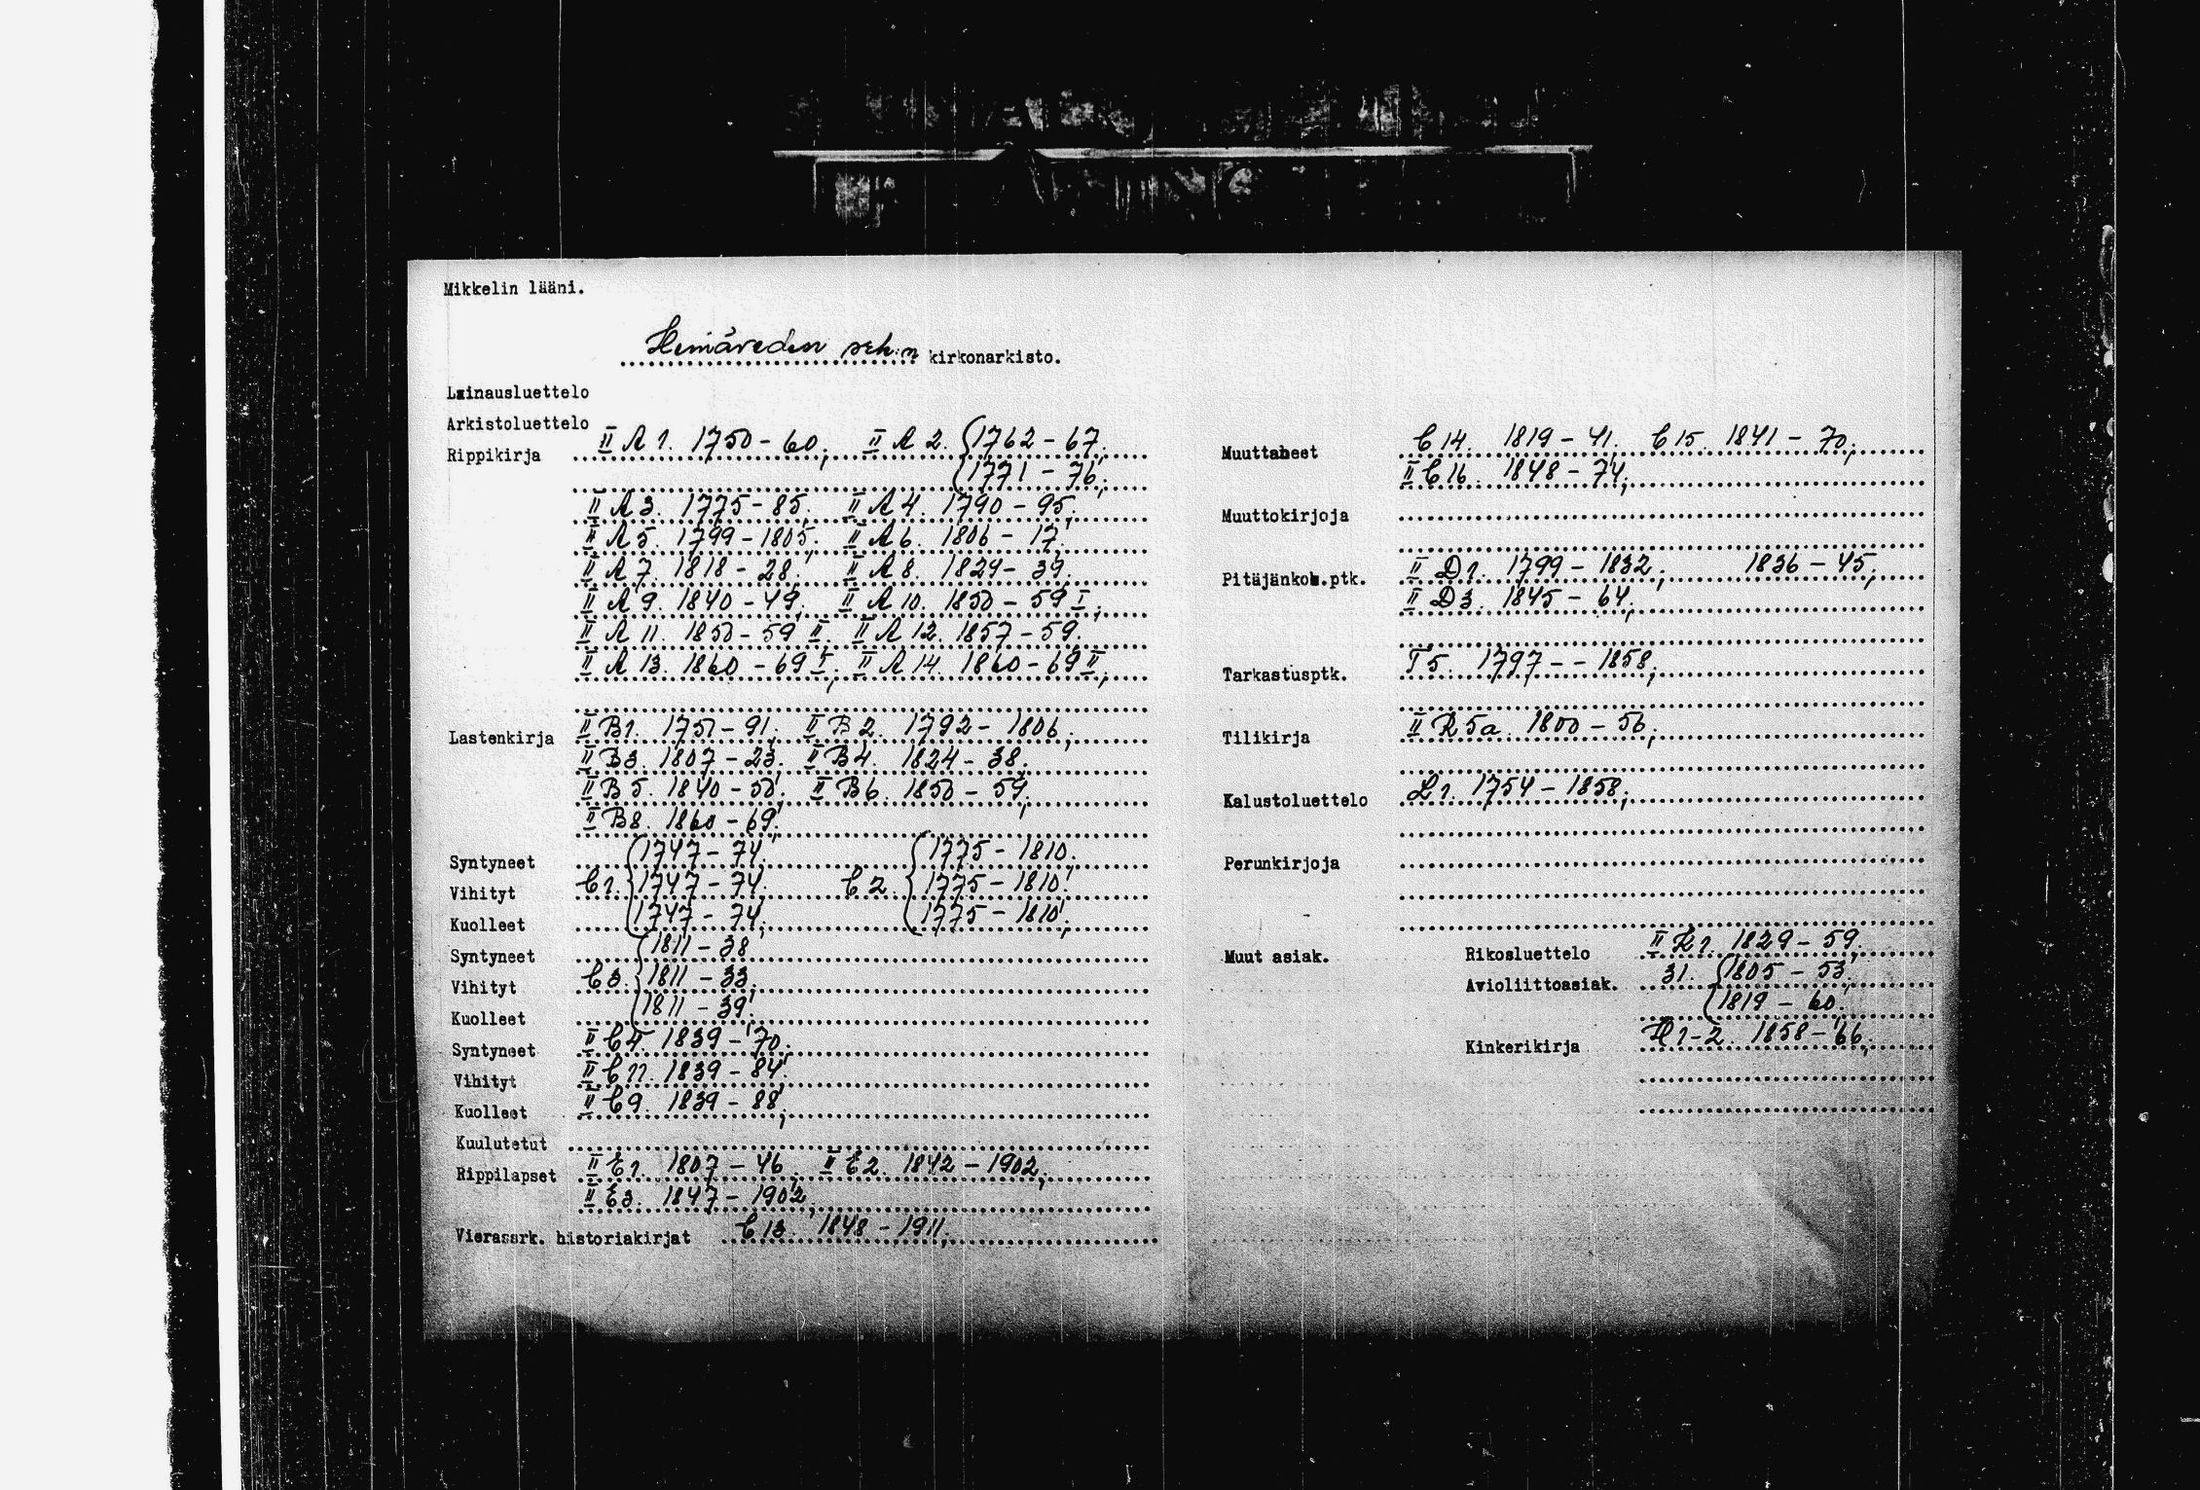 Mikkelin lääni.
Heinäveden srk:n kirkonarkisto.
Lainausluettelo
Arkistoluettelo
Rippikirja II A 1. 1750-60; II A 2. 1762-67;
1771-76;
II A 3. 1775-85; II A 4. 1790-95;
II A 5. 1799-1805; II A 6. 1806-17;
II A 7. 1818-28; II A 8. 1829-39;
II A 9. 1840-49; II A 10. 1850-59 I;
II A 11. 1850-59 II; II A 12. 1857-59;
II A 13. 1860-69 I; II A 14. 1860-69 II;
Lastenkirja II B 1. 1751-91; II B 2. 1792-1806;
II B 3. 1807-23; II B 4. 1824-38;
II B 5. 1840-50; II B 6. 1850-59;
II B 8. 1860-69;
Syntyneet 1747-74; 1775-1810;
Vihityt C 1. 1747-74; C 2. 1775-1810;
Kuolleet 1747-74; 1775-1810;
Syntyneet 1811-38
Vihityt C 3. 1811-33;
Kuolleet 1811-39;
Syntyneet II C 4. 1839-70;
Vihityt II C 11. 1839-84;
Kuolleet II C 9. 1839-88;
Kuulutetut
Rippilapset II E 1. 1807-46; II E 2. 1842-1902;
II E 3. 1847-1902;
Vierassrk. historiakirjat C 13. 1848-1911;
Muuttaneet C 14. 1819-41; C 15. 1841-70;
II C 16. 1848-74;
Muuttokirjoja
Pitäjänkok.ptk. II D 1. 1799-1832; 1836-45;
II D 3. 1845-64;
Tarkastusptk. T 5. 1797--1858;
Tilikirja II R 5a. 1800-56;
Kalustoluettelo L 1. 1754-1858;
Perunkirjoja
Muut asiak. Rikosluettelo II K 1. 1829-59;
Avioliittoasiak. 31. 1805-53;
1819-60;
Kinkerikirja H 1-2. 1858-66;